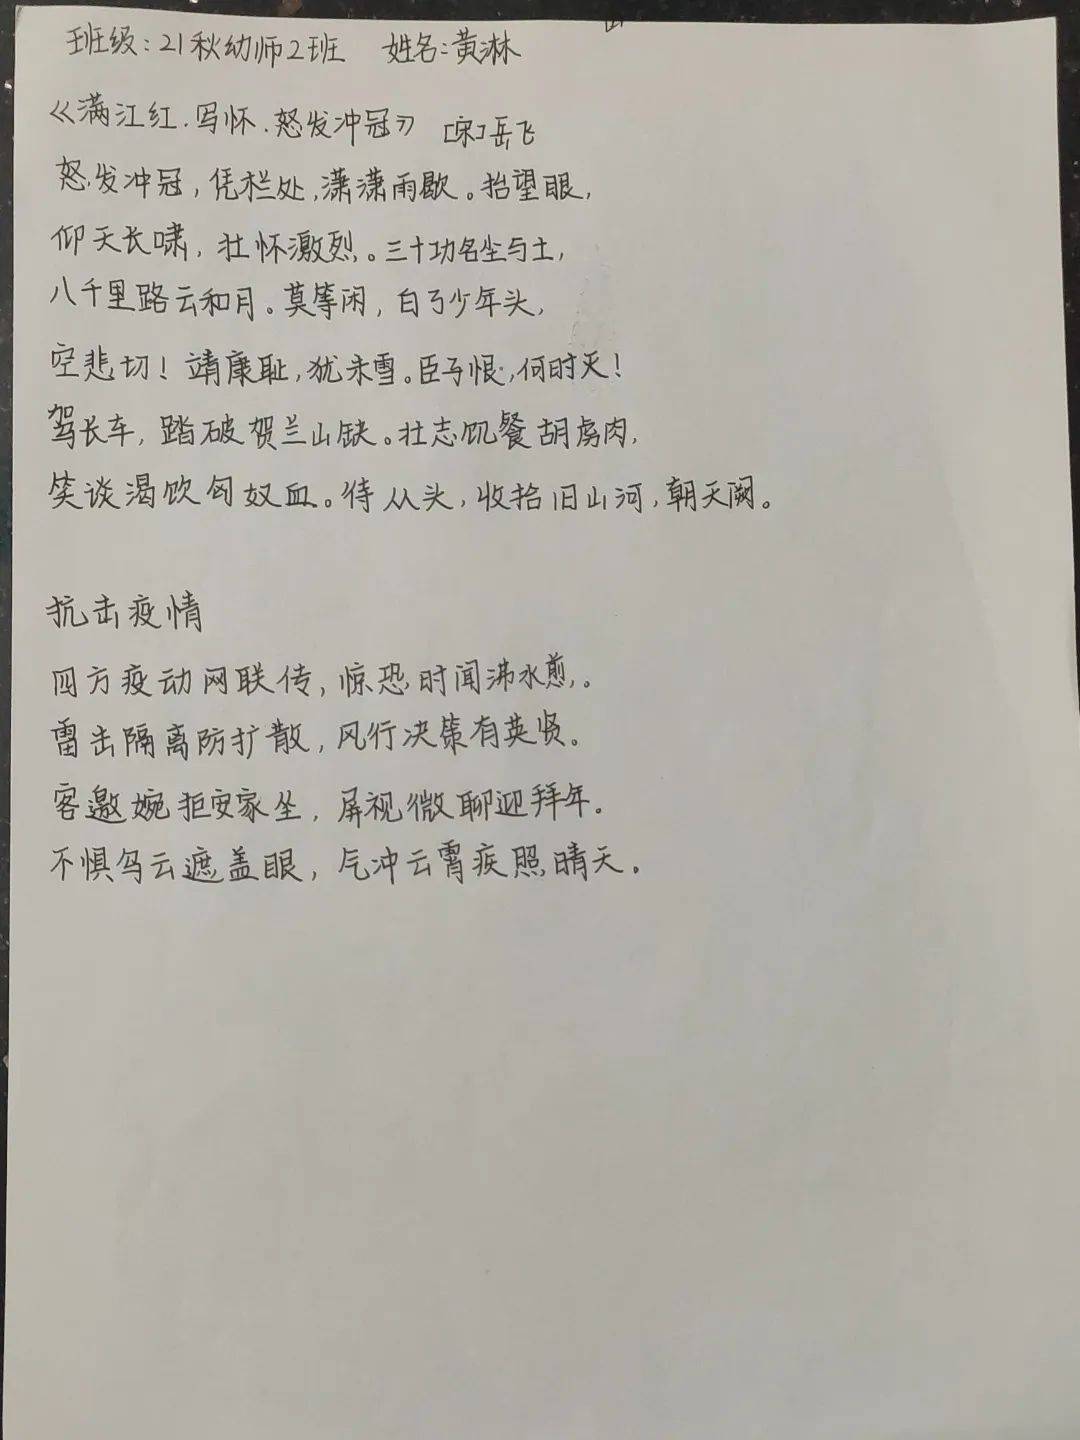 班级:21秋幼师2班 姓名:黄淋
《满江红.写怀.怒发冲冠》 [宋]岳飞
怒发冲冠,凭栏处,潇潇雨歇。抬望眼,
仰天长啸,壮怀激烈。三十功名尘与土,
八千里路云和月。莫等闲,白了少年头,
空悲切!靖康耻,犹未雪。臣子恨,何时灭!
驾长车,踏破贺兰山缺。壮志饥餐胡虏肉,
笑谈渴饮匈奴血。待从头,收拾旧山河,朝天阙。
抗击疫情
四方疫动网联传,惊恐时闻沸水煎。
雷击隔离防扩散,风行决策有英贤。
客邀婉拒安家坐,屏视微聊迎拜年。
不惧乌云遮盖眼,气冲云霄疾照晴天。